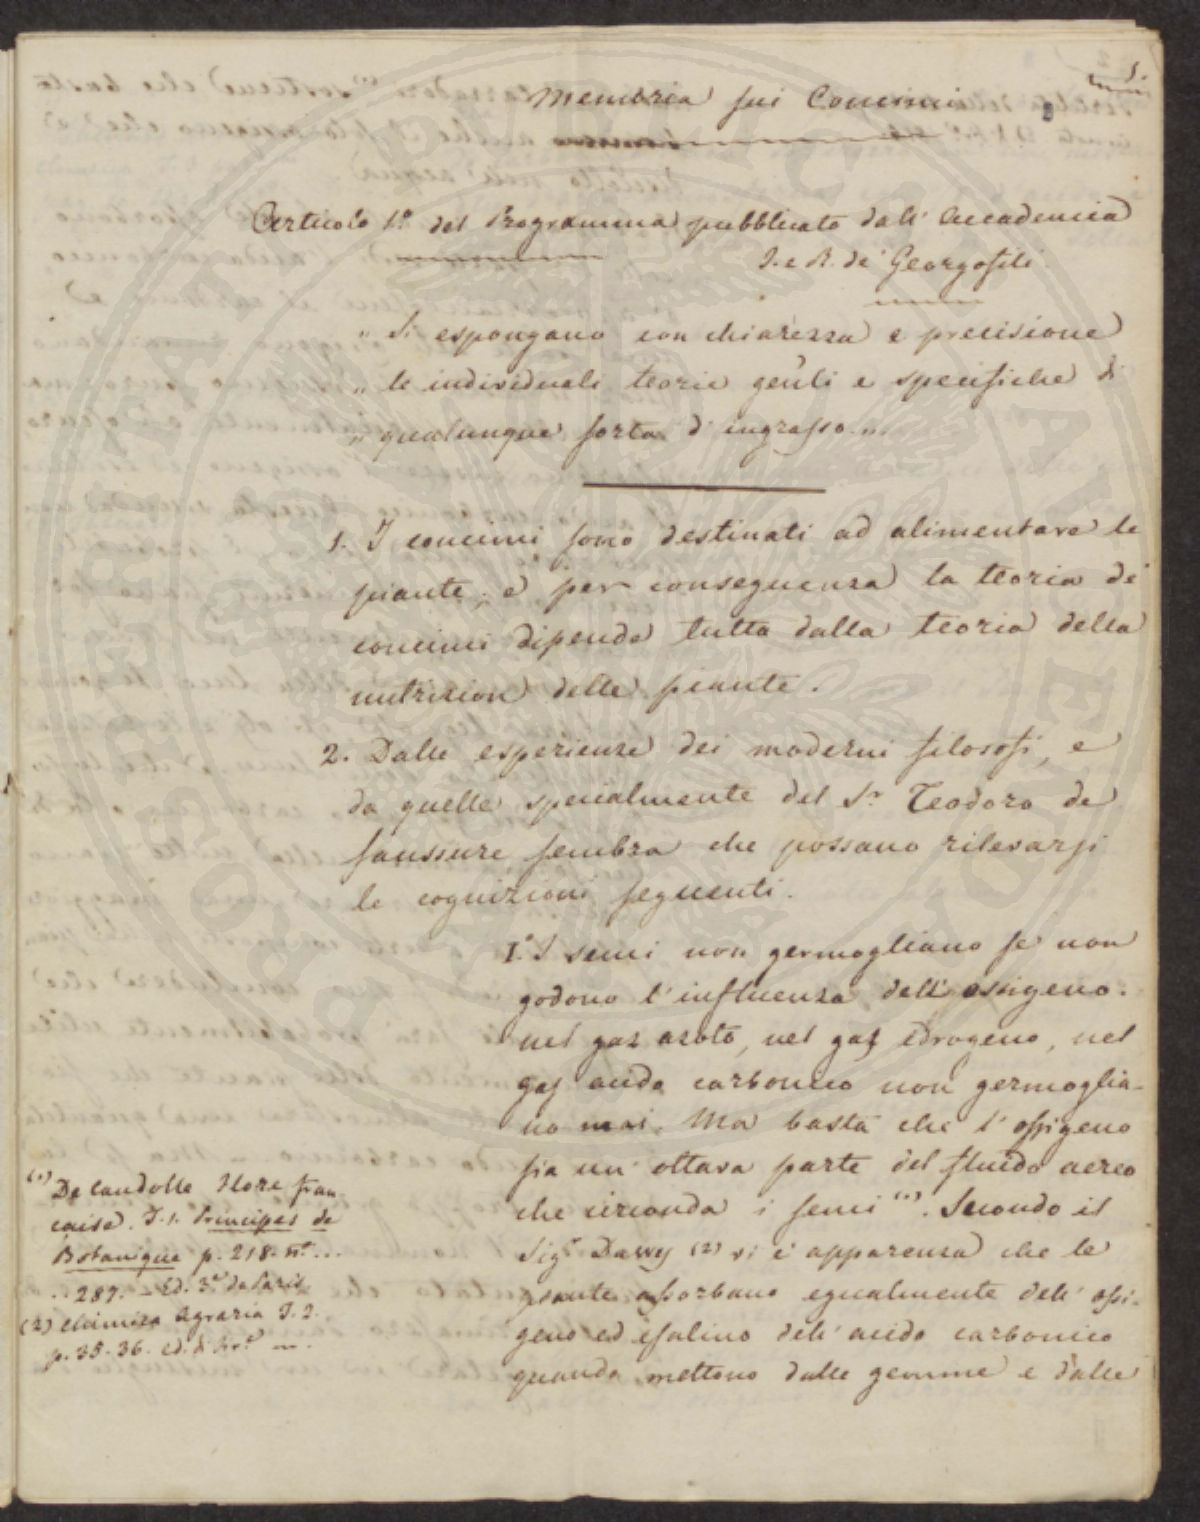 1.
Memoria sui Concimi
Articolo 1.º del Programma pubblicato dall' Accademia
I. e R. de' Georgofili
" Si espongano con chiarezza e precisione
" le individuali teorie gen̄li e specifiche di
" qualunque sorta d' ingrasso. "
1. I concimi sono destinati ad alimentare le
piante; e per conseguenza la teoria de'
concimi dipende tutta dalla teoria della
nutrizion delle piante.
2. Dalle esperienze dei moderni filosofi, e
da quelle specialmente del S.r Teodoro de
Saussure sembra che possano rilevarsi
le cognizioni seguenti.
I.º I semi non germogliano se non
godono l'influenza dell' ossigeno.
nel gaz azoto, nel gaz idrogeno, nel
gaz acido carbonico non germoglia-
no mai. Ma basta che l' ossigeno
sia un' ottava parte del fluido aereo
che circonda i semi (1). Secondo il
Sig.r Davvy (2) vi è apparenza che le
piante assorbano egualmente dell' ossi-
geno ed esalino dell' acido carbonico
quando mettono dalle gemme e dalle
(1) De Candolle Flore fran-
caise. T. 1. Principes de
Botanique p. 218. n.º ...
. 287. - Ed. 3.a da Paris
(2) Chimica Agraria T. 2.
p. 35. 36. ed. di Fir.e